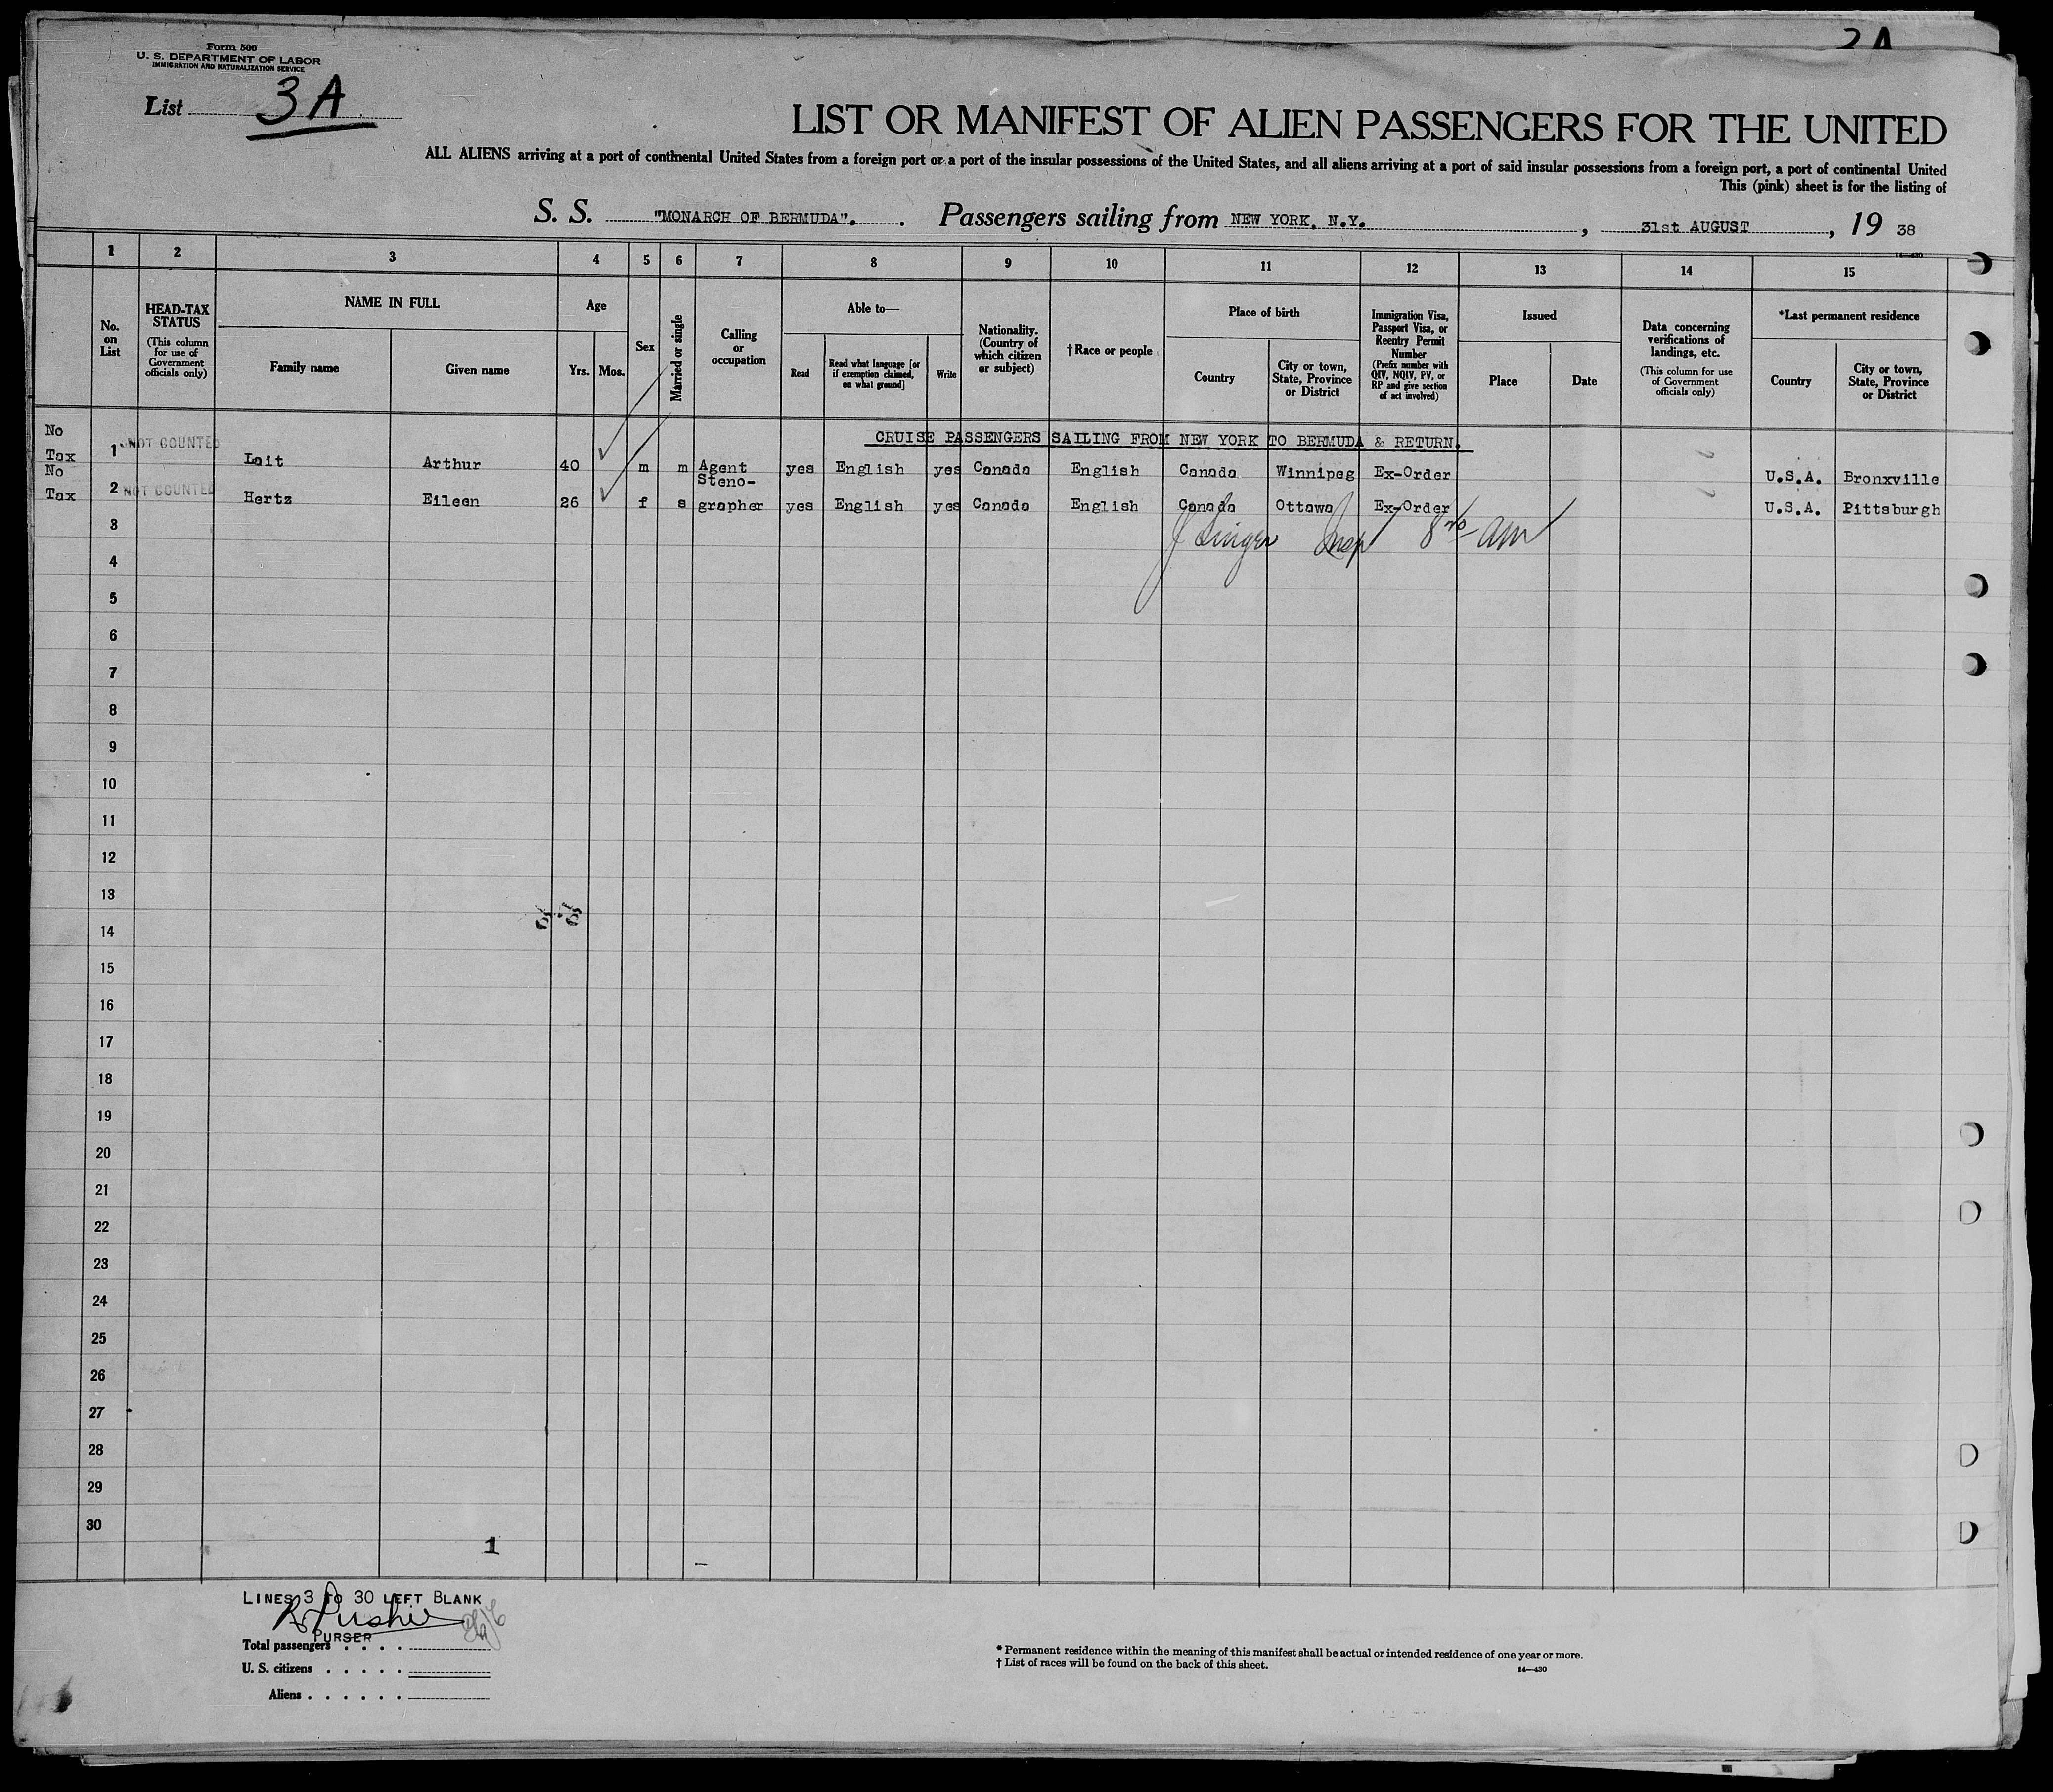 3A
Form 500
U. S. DEPARTMENT OF LABOR
IMMIGRATION AND NATURALIZATION SERVICE
List 3A
LIST OR MANIFEST OF ALIEN PASSENGERS FOR THE UNITED
ALL ALIENS arriving at a port of continental United States from a foreign port or a port of the insular possessions of the United States, and all aliens arriving at a port of said insular possessions from a foreign port, a port of continental United
This (pink) sheet is for the listing of
S. S. "MONARCH OF BERMUDA". Passengers sailing from NEW YORK, N.Y. , 31st AUGUST , 19 38
14—430
1 2 3 4 5 6 7 8 9 10 11 12 13 14 15
No. on List
HEAD-TAX STATUS (This column for use of Government officials only)
NAME IN FULL
Family name Given name
Age
Yrs. Mos.
Sex
Married or single
Calling or occupation
Able to—
Read Read what language [or if exemption claimed, on what ground] Write
Nationality. (Country of which citizen or subject)
†Race or people
Place of birth
Country City or town, State, Province or District
Immigration Visa, Passport Visa, or Reentry Permit Number (Prefix number with QIV, NQIV, PV, or RP and give section of act involved)
Issued
Place Date
Data concerning verifications of landings, etc. (This column for use of Government officials only)
*Last permanent residence
Country City or town, State, Province or District
CRUISE PASSENGERS SAILING FROM NEW YORK TO BERMUDA & RETURN.
No Tax 1 NOT COUNTED Lait Arthur 40 m m Agent yes English yes Canada English Canada Winnipeg Ex-Order U.S.A. Bronxville
No Tax 2 NOT COUNTED Hertz Eileen 26 f s Steno-grapher yes English yes Canada English Canada Ottawa Ex-Order U.S.A. Pittsburgh
3 J Singer Insp 8 00 AM
4
5
6
7
8
9
10
11
12
13
14
15
16
17
18
19
20
21
22
23
24
25
26
27
28
29
30
1
LINES 3 TO 30 LEFT BLANK
PURSER
Total passengers
U. S. citizens
Aliens
* Permanent residence within the meaning of this manifest shall be actual or intended residence of one year or more.
† List of races will be found on the back of this sheet.
14—430